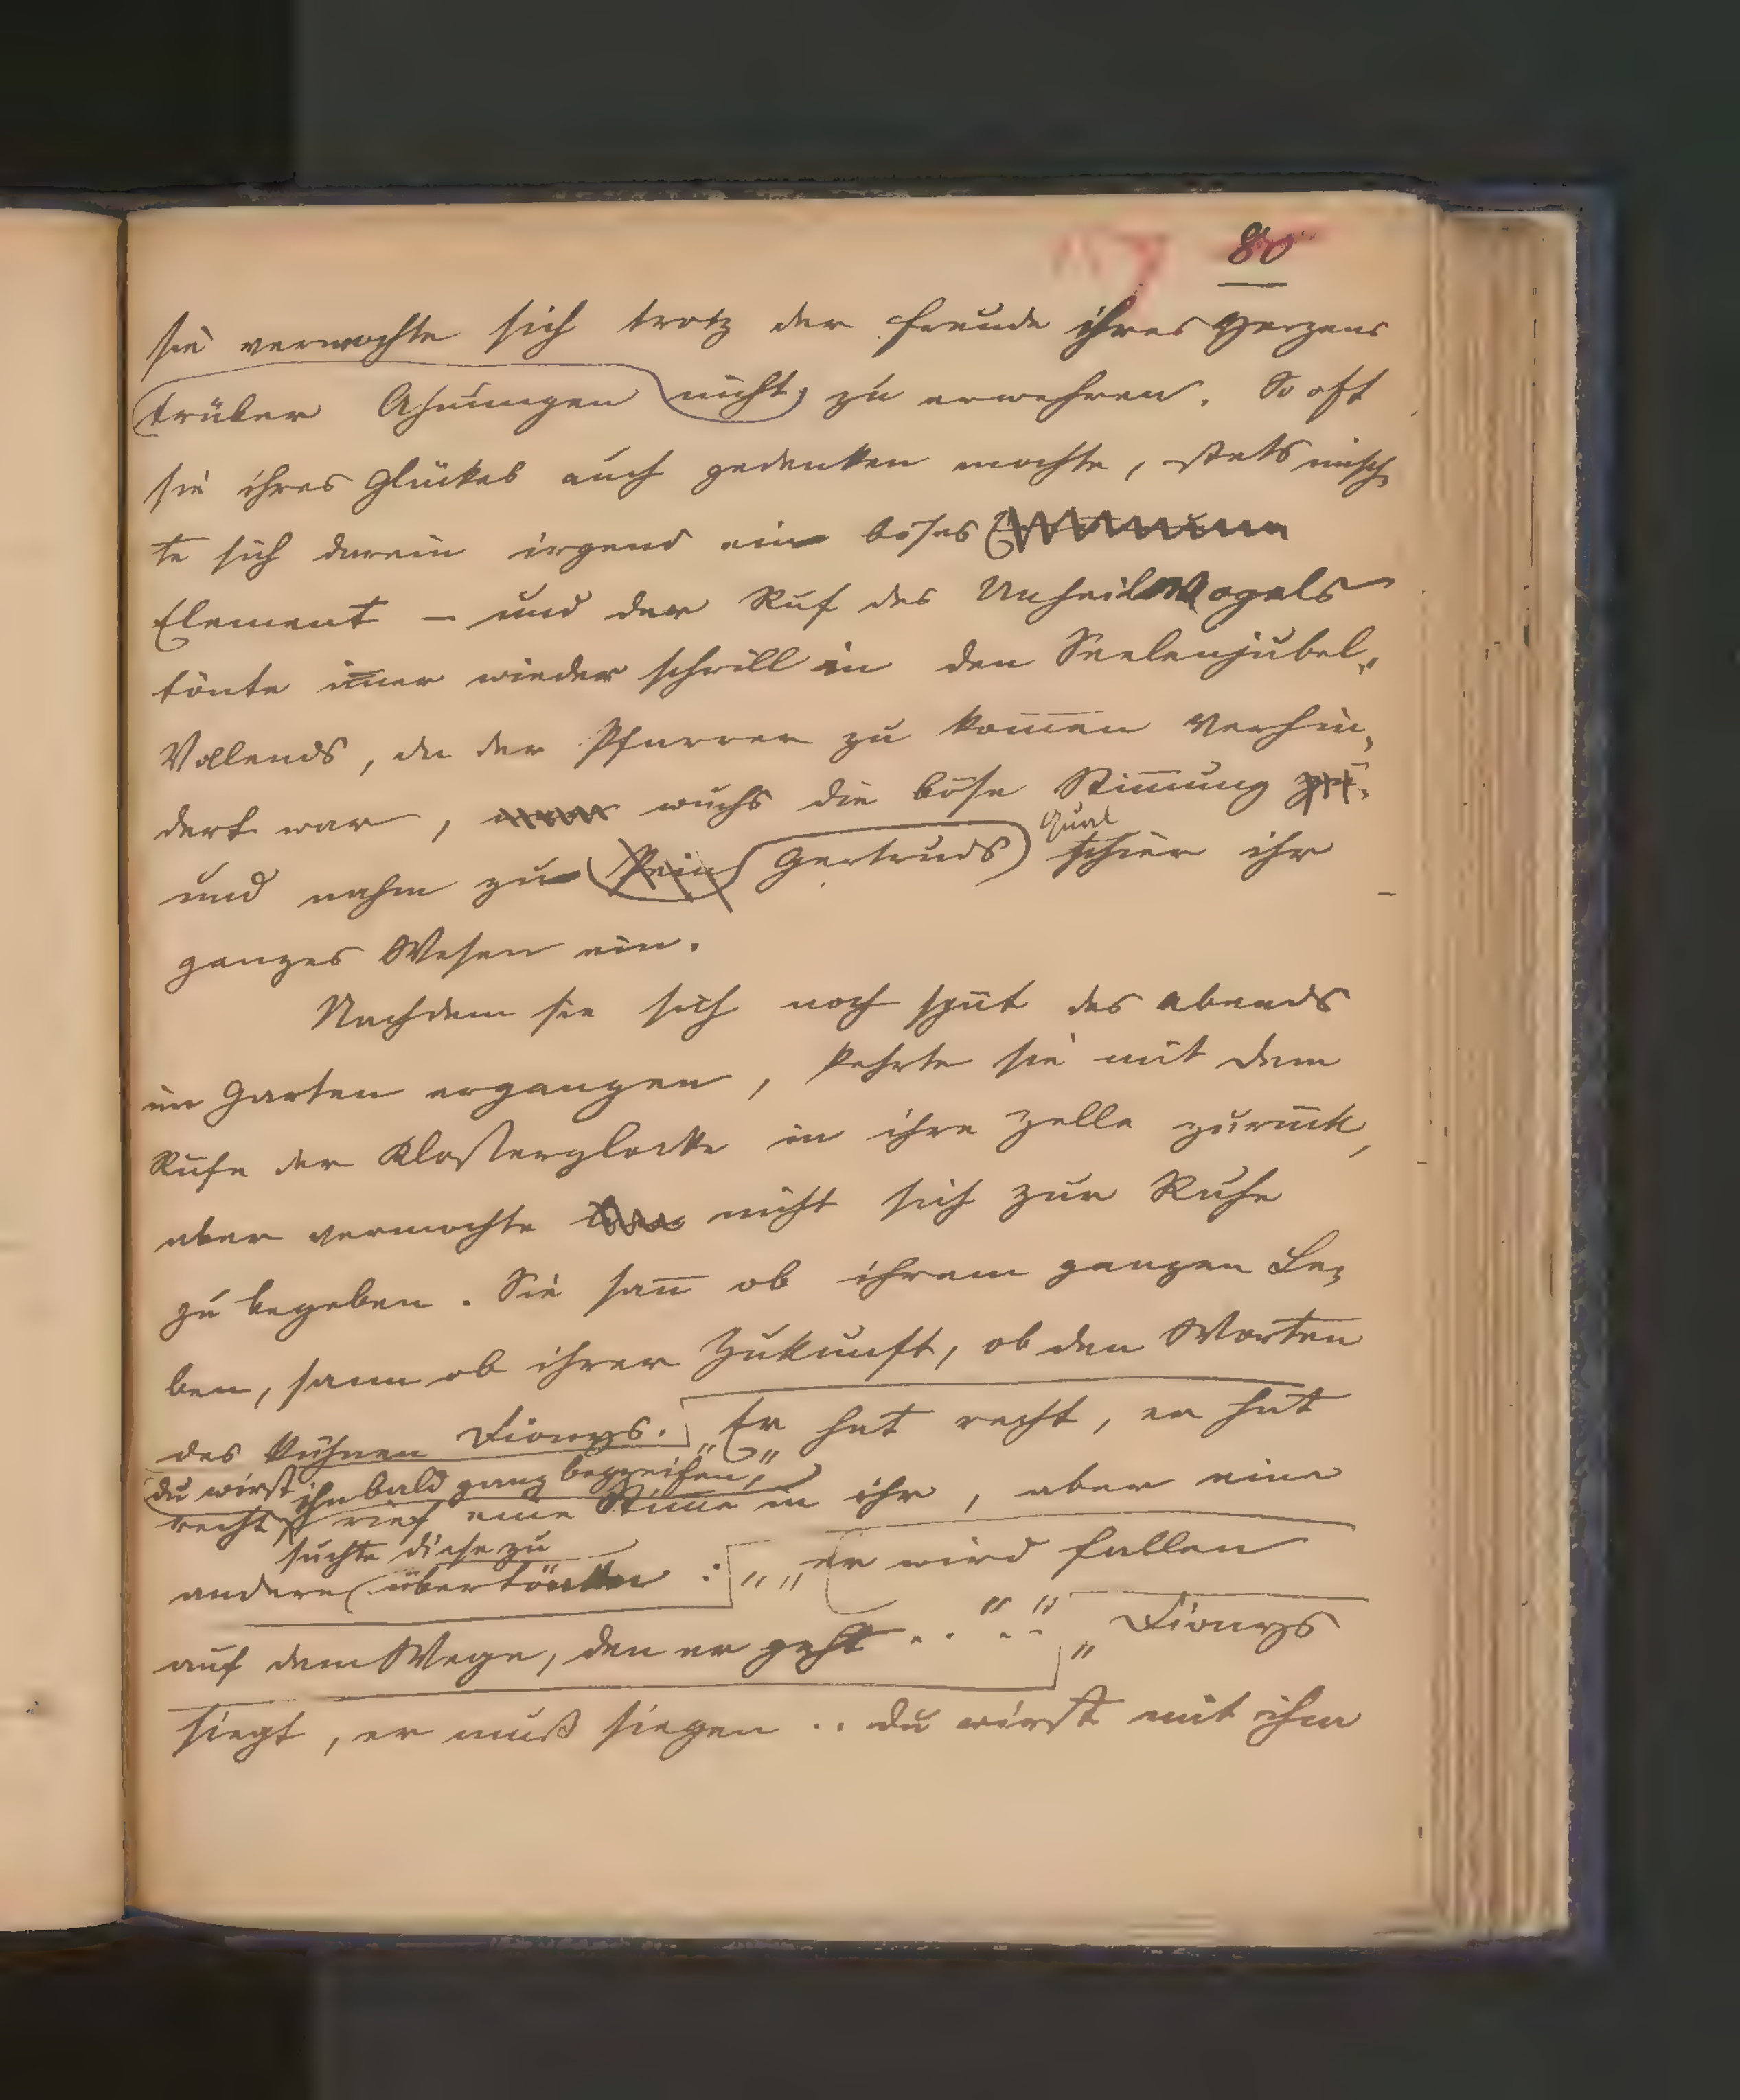 80
sie vermochte sich trotz der Freude ihres Herzens
trüber Ahnungen nicht zu erwehren. So oft
sie ihres Glückes auch gedenken mochte, stets misch
te sich darein irgend ein böses
Element – und der Ruf des Unheilvogels
tönte im̄er wieder schrill in den Seelenjubel.
Vollends, da der Pfarrer zu kom̄en verhin„
dert war, wuchs die böse Stim̄ung
und nahm zu Pein Gertruds Qual schier ihr
ganzes Wesen ein.
Nachdem sie sich noch spät des Abends
im Garten ergangen, kehrte sie mit dem
Rufe der Klosterglocke in ihre Zelle zurück,
aber vermochte nicht sich zur Ruhe
zu begeben. Sie san̄ ob ihrem ganzen Le„
ben, sann ob ihrer Zukunft, ob den Worten
des kühnen Dionys. „Er hat recht, er hat
du wirst ihn bald ganz begreifen,"
recht, rief eine Stim̄e in ihr, aber eine
suchte diese zu
andere übertönen: „„er wird fallen
auf dem Wege, den er geht . . "" . . „Dionys
siegt, er muß siegen .. du wirst mit ihm